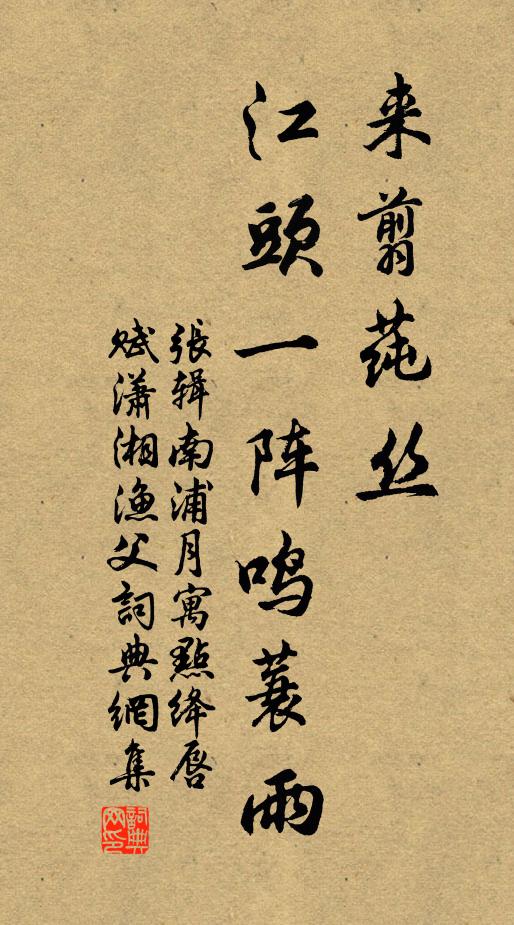 来翦莼丝
江頭一阵鸣蓑雨
張辑南浦月寓點绛唇
赋潇湘漁父詞典網集
詞典网印